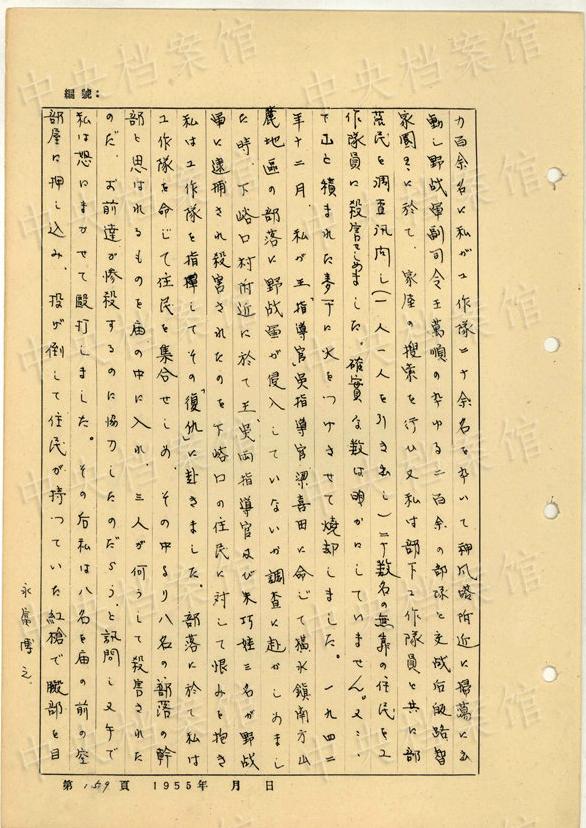 編號：
力百余名に私が工作隊二十余名を率いて神爪峪附近に掃蕩に出
動し野战軍副司令王萬順の率ゆる二百余の部隊と交战后殿路智
家園々に於て、家屋の搜索を行ひ又私は部下工作隊員と共に部
落民を調査訊问し（一人一人を引き出し）二十数名の無辜の住民を工
作隊員に殺害せしめました。確實な数は明かにしていません。又
て山と積まれた麦下に火をつけさせて焼却しました。一九四二
年十二月、私が王「指導官」吳指導官梁喜田に命じて橫水鎮南方山
麓地區の部落に野战軍が侵入していないか調査に赴かしめまし
た時、下峪口村附近に於て王、吳両指導官及び朱巧娃三名が野战
軍に逮捕され殺害されたのを下峪口の住民に対して恨みを抱き
私は工作隊を指揮してその「復仇」に赴きました。部落に於て私は
工作隊を命じて住民を集合せしめ、その中より八名の部落の幹
部と思はれるものを庙の中に入れ、三人が何うして殺害された
のだ、お前達が惨殺するのに協力したのだらう、と訊问し又平手で
私は怒にまかせて毆打しました。その后私は八名を庙の前の空
部屋に押し込み、投げ倒して住民が持つていた紅槍で腹部を目
永富博之
第 159 頁 1955年 月 日
中央档案馆